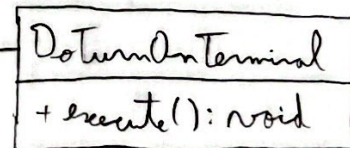 DoTurnOnTerminal
+ execute(): void